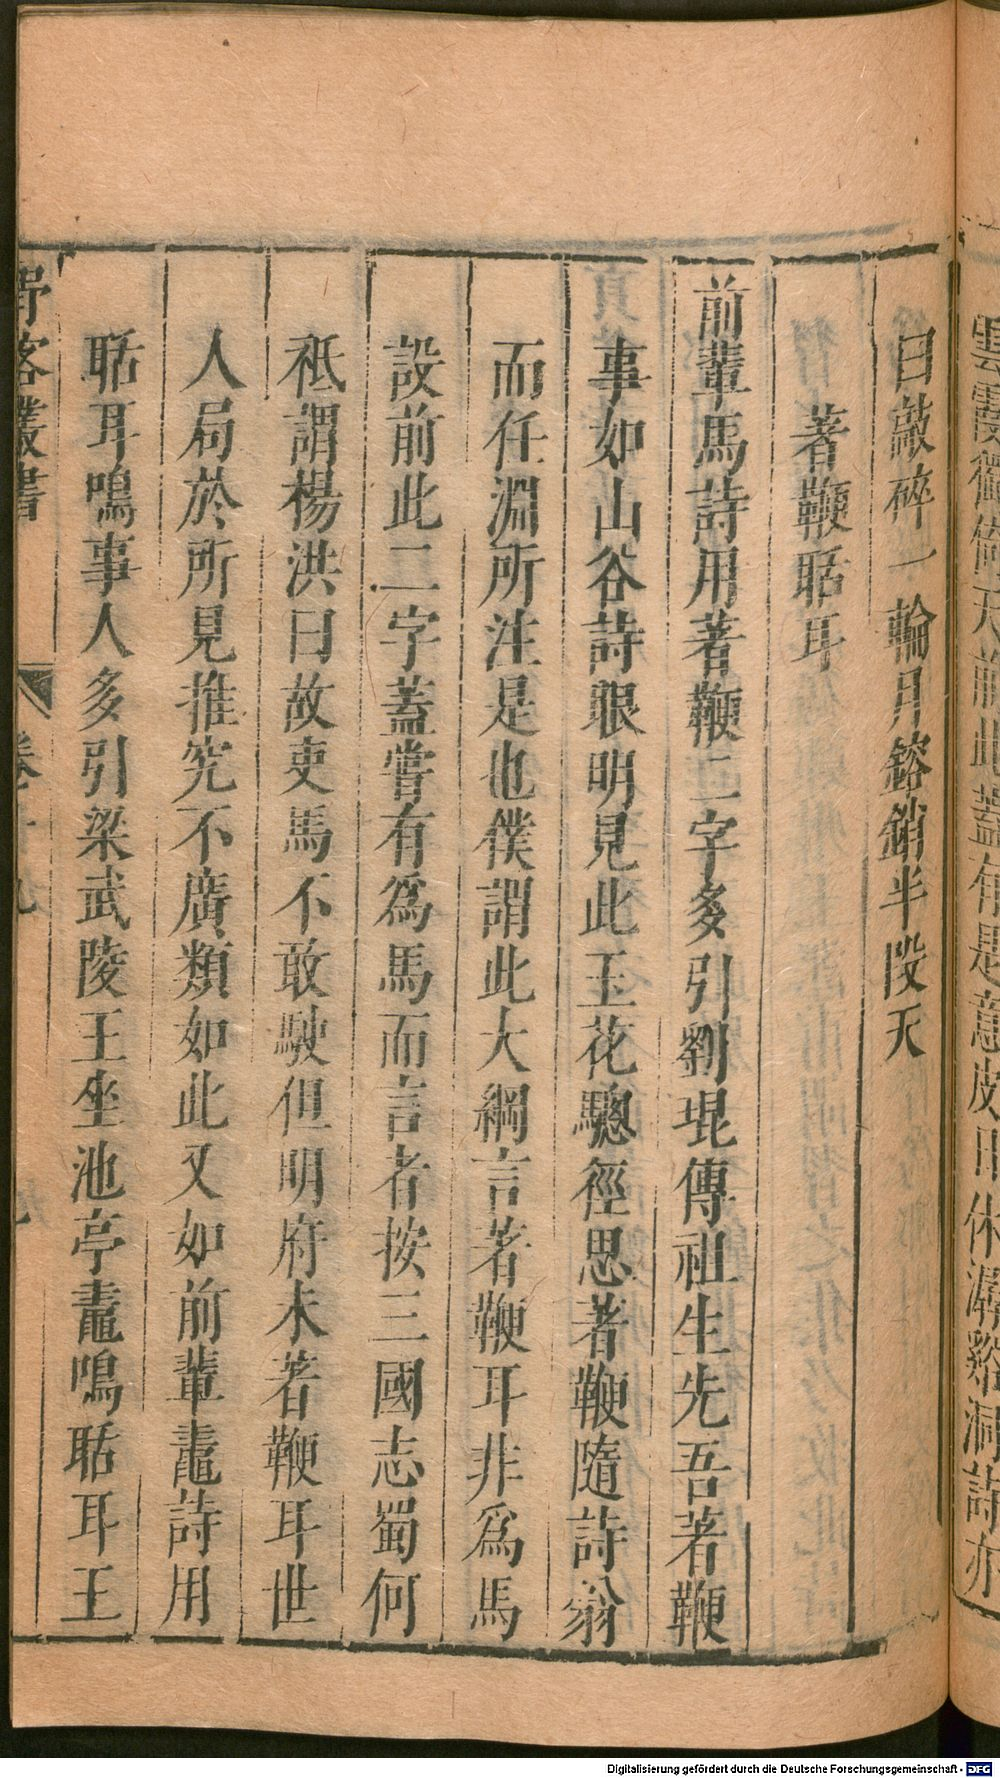 雲霞衞
天前此蓋有是意皮日休潺谿洞詩亦
曰敲碎一輪月鎔銷半段天
著鞭聒耳
前輩馬詩用著鞭二字多引劉琨傳祖生先吾著鞭
事如山谷詩眼明見此玉花驄徑思著鞭隨詩翁
而任淵所注是也僕謂此大綱言著鞭耳非爲馬
設前此二字蓋嘗有爲馬而言者按三國志蜀何
秖謂楊洪曰故吏馬不敢駛但明府未著鞭耳世
人局於所見推究不廣類如此又如前輩鼃詩用
聒耳鳴事人多引梁武陵王坐池亭鼃鳴聒耳王
野客叢書 卷十九
Digitalisierung gefördert durch die Deutsche Forschungsgemeinschaft - DFG